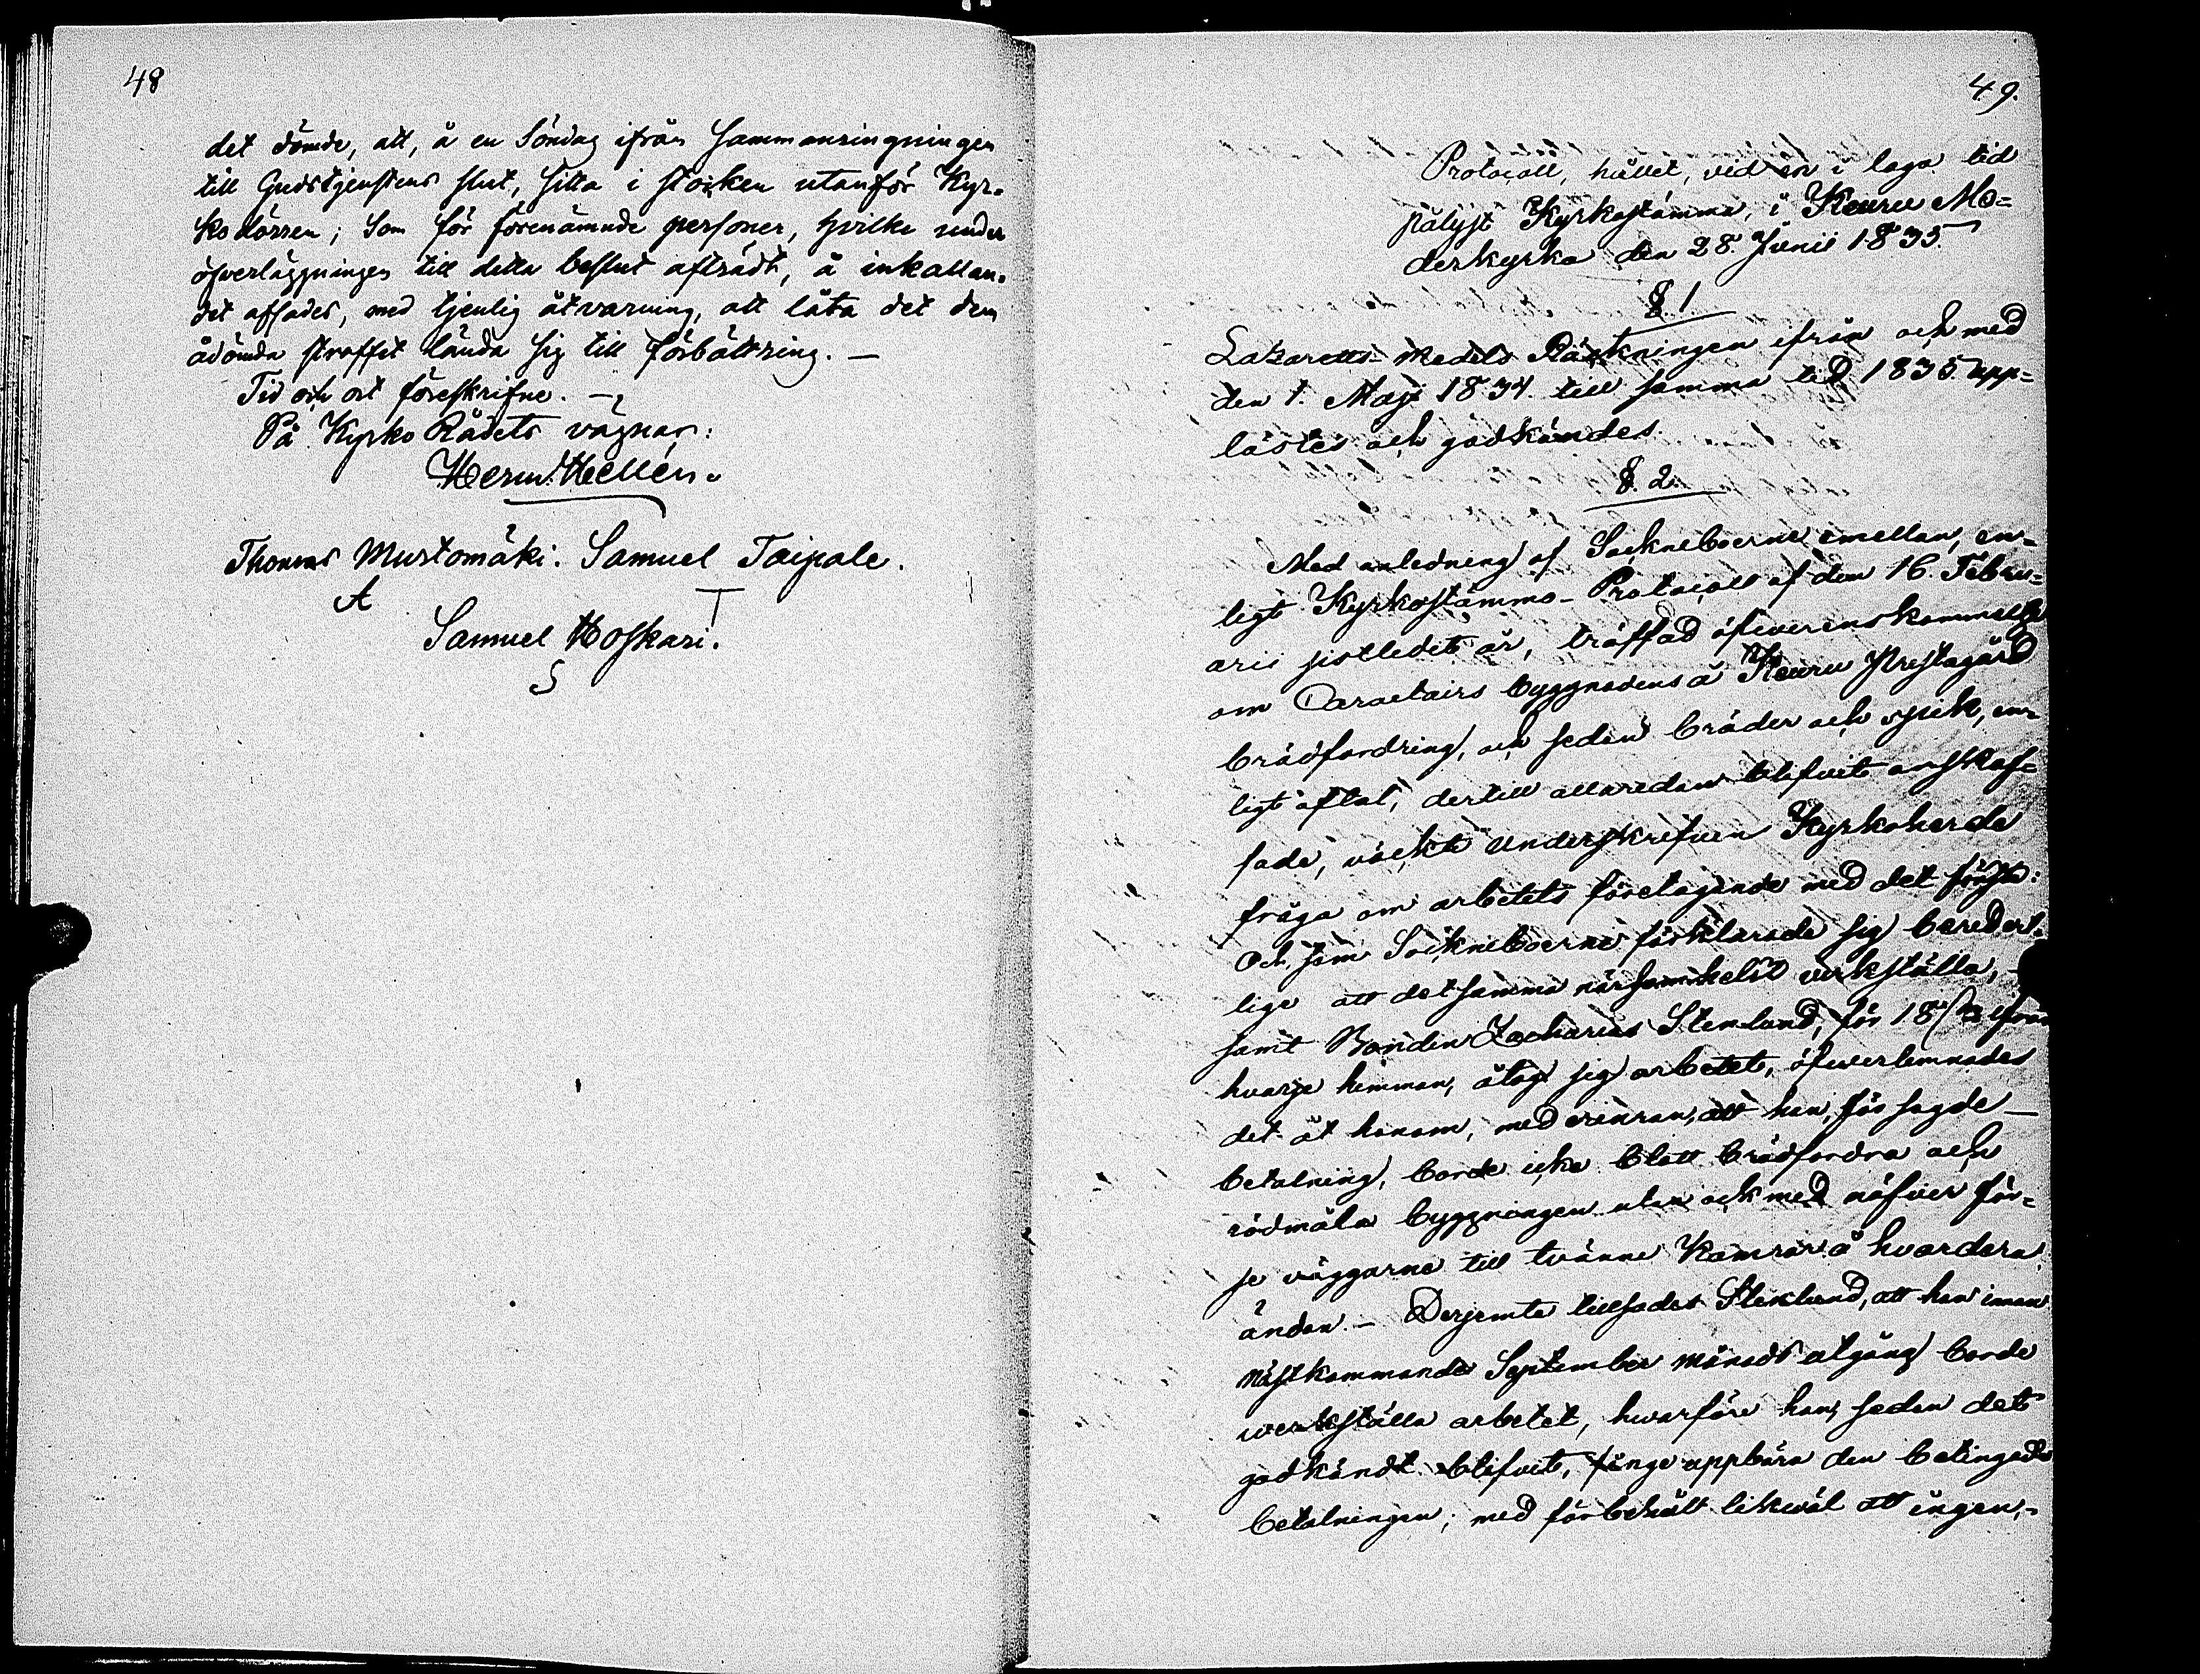 48
det dömde, att, å en Söndag ifrån Sammanringningen
till Gudstjenstens slut, sitta i stocken utanför Kyr-
kodörren; Som för förenämnde personer, hvilke under
öfverläggningen till detta beslut afträdt, å inkallan-
det afsades, med tjenlig åtvarning, att låta det dem
ådömda straffet lända sig till förbättring. —
Tid och ort föreskrifne. —
På Kyrko Rådets vägnar:
Herm. Hellén.
Thomas Mustomäki. Samuel Taipale.
A T
Samuel Hoskari.
S
49.
Protocoll, hållet, vid en i laga tid
pålyst Kyrkostämma, i Keuru Mo=
derkyrka den 28 Junii 1835.
§. 1
Lazaretts-medels Räckningen ifrån och med
den 1. Maji 1834. till samma tid 1835. upp=
lästes och godkändes.
§. 2.
Med anledning af Sockneboerne emellan, en=
ligt Kyrkostämmo-Protocoll af den 16. Febru=
arii sistledit år, träffad öfwerenskommelse
om Caractairs byggnadens å Keuru Prestagård
brädfordring, och sedan bräder och spik, en=
ligt aftal, dertill allaredan blifvit anskaf=
fade, väckte Underskrefven Kyrkoherde
fråga om arbetets företagande med det första:
Och som Sockneboerne förklarade sig beredert-
lige att detsamma närsomhelst verkställa, -
samt Bonden Zacharias Stenlund, för 18 ifrån
hvarje hemman, åtog sig arbetet, öfwerlemnades
det åt honom, med erinran, att han, för sagde —
betalning, borde icke blott brädfordra och
rödmåla byggningen utan ock med näfver för=
se väggarne till tvänne Kamrar å hvardera
ändan. — Derjemte tillsades Stenlund, att han innan
nästkommande September månads utgång borde
werkställa arbetet, hwarföre han, sedan det
godkändt blifvit, finge uppbära den betingade
betalningen; med förbehåll likwäl att ingen,-